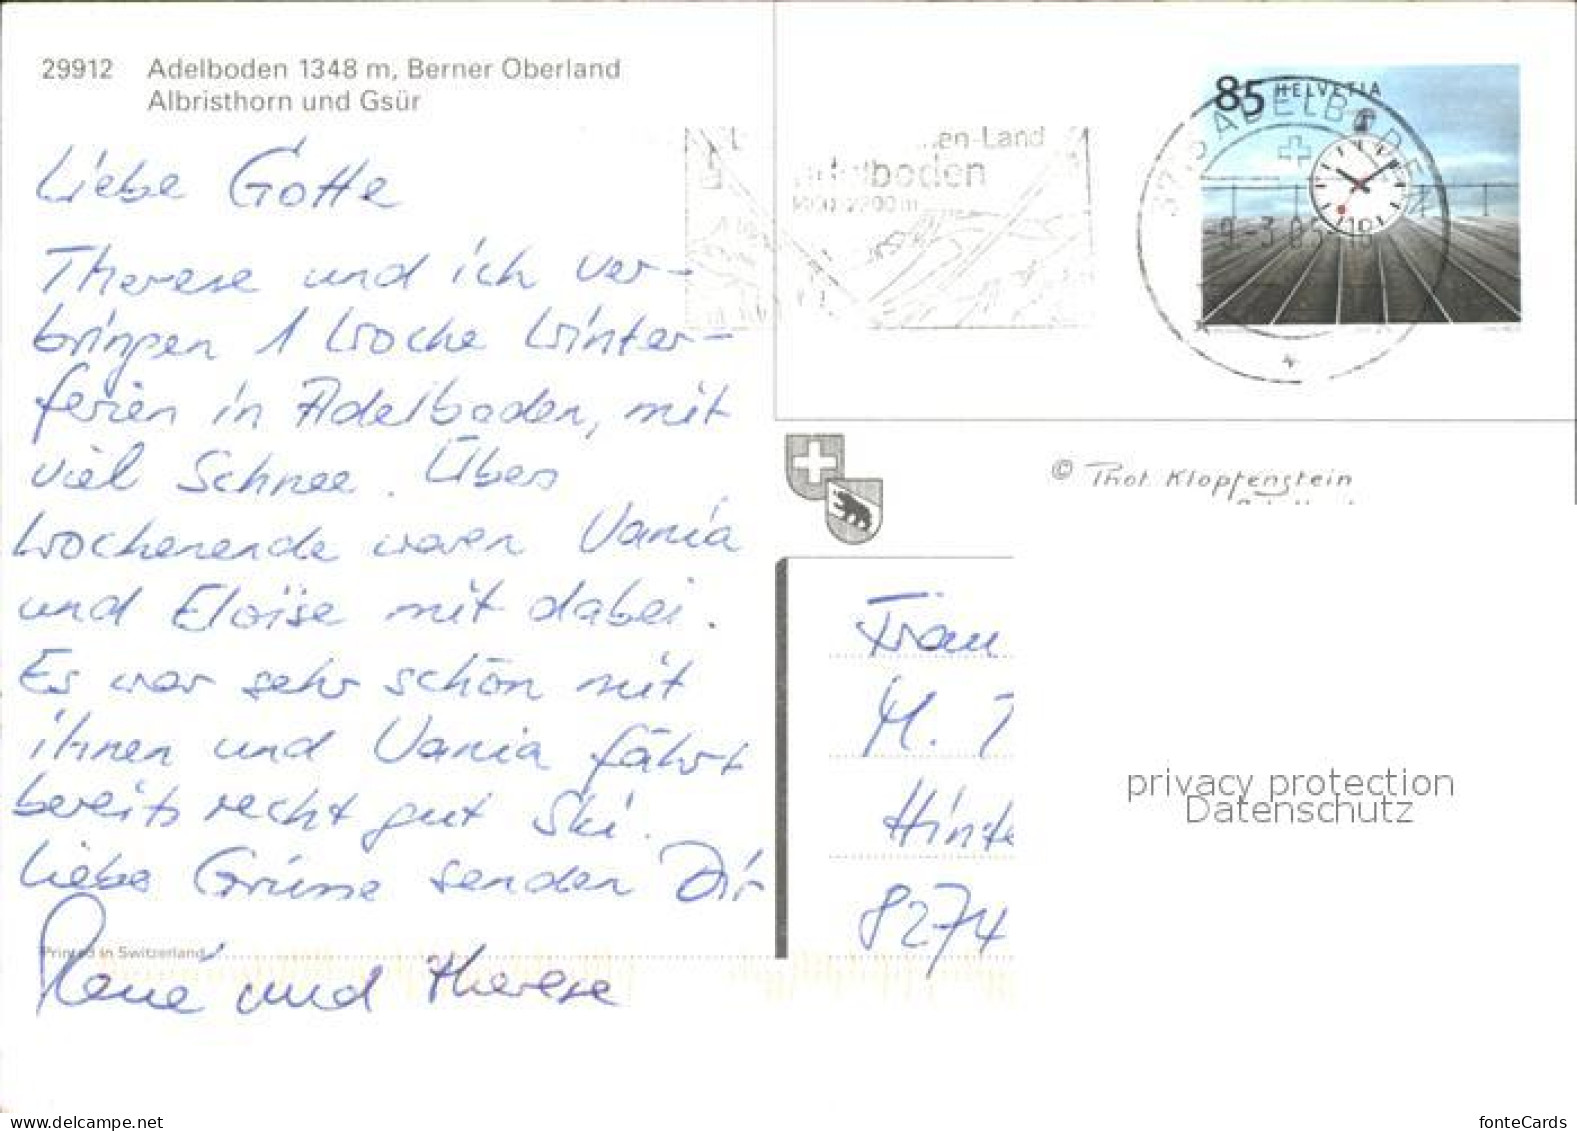 29912 Adelboden 1348 m, Berner Oberland
Albristhorn und Gsür
Liebe Gotte
Therese und ich ver-
bringen 1 Woche Winter-
ferien in Adelboden, mit
viel Schnee. Übers
Wochenende waren Vania
und Eloïse mit dabei.
Es war sehr schön mit
ihnen und Vania fährt
bereits recht gut Ski.
Liebe Grüsse senden Dir
René und Therese
Printed in Switzerland
en-Land
Adelboden
2200 m
85 HELVETIA
ADELBODEN
-9-3.05-18
© Phot. Klopfenstein
Frau
M.
Hinte
8274
privacy protection
Datenschutz
www.delcampe.net
fonteCards